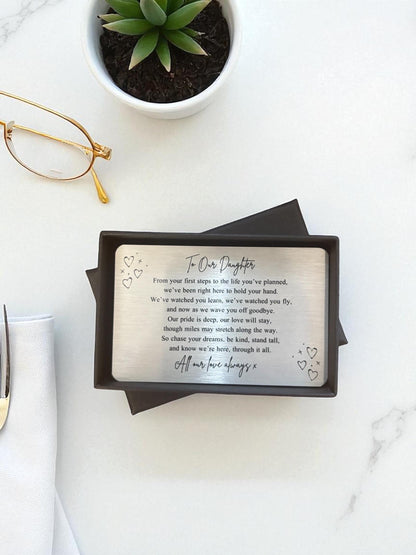 To Our Daughter
From your first steps to the life you've planned,
we've been right here to hold your hand.
We've watched you learn, we've watched you fly,
and now as we wave you off goodbye.
Our pride is deep, our love will stay,
though miles may stretch along the way.
So chase your dreams, be kind, stand tall,
and know we're here, through it all.
All our love always x